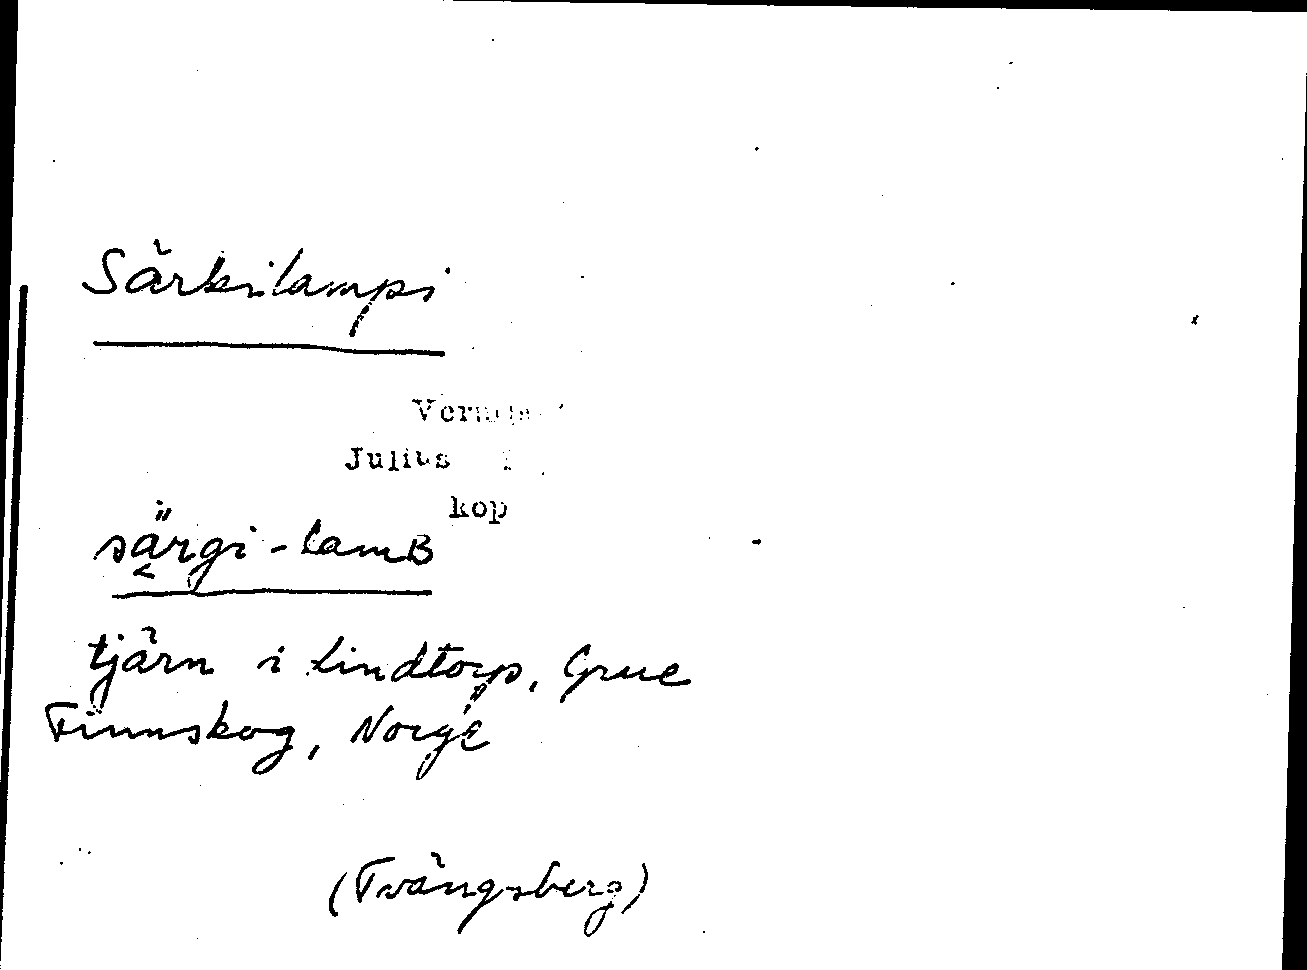 Särkilampi
Julius
kop
särgi-lamB
tjärn i Lindtorp, Grue
Finnskog, Norge
(Tvängsberg)